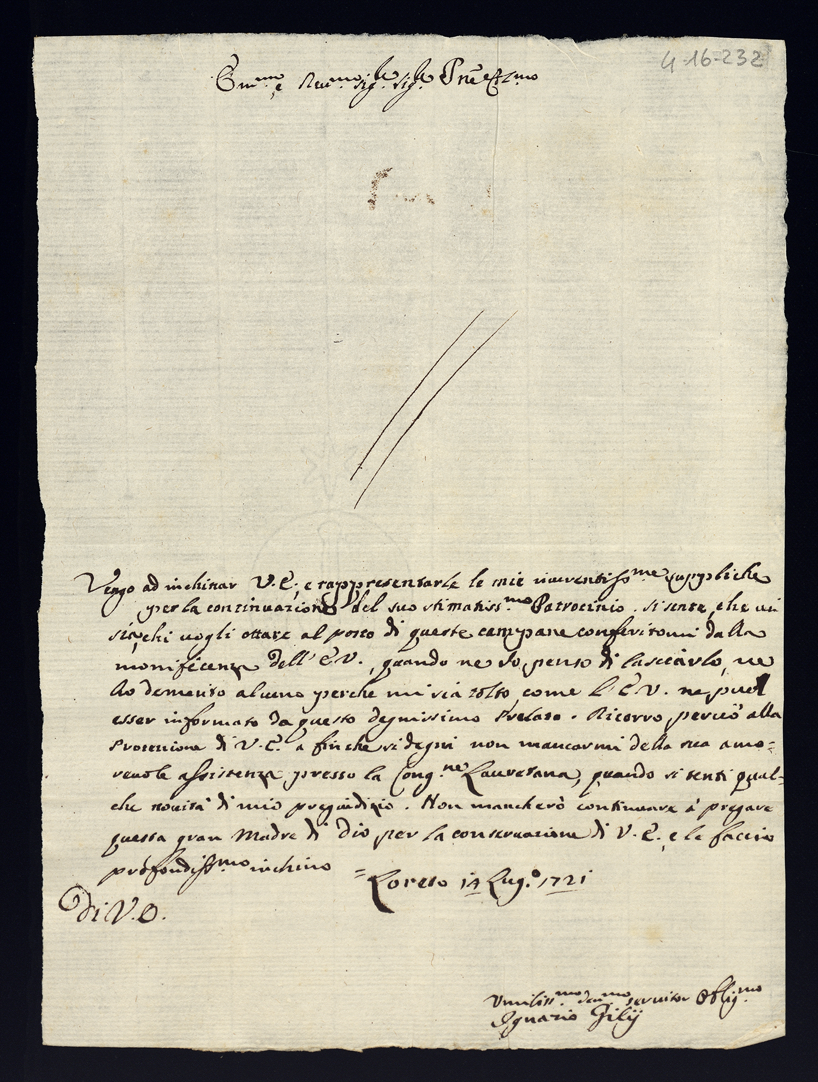 4-16-232
Em.mo e Reu.mo Sig.re Sig.re Pne
Vengo ad inchinar V. E., e rappresentarle le mie riuerentiss.me suppliche
per la continuazione del suo stimatiss.mo Patrocinio. Si sente, che ui
sia, chi uogli ottare al posto di queste campane conferitomi dalla
monificenza dell' E. V., quando ne Io penso di lasciarlo, ne
ho demerito alcuno perche mi sia tolto come l' E. V. ne puol
esser informato da questo degnissimo Prelato. Ricorro perciò alla
Protenzione di V. E. a fin che si degni non mancarmi della sua amo=
reuole assistenza presso la Cong.ne Lauretana, quando si senti qual=
che nouità di mio pregiudizio. Non mancherò continuare à pregare
questa gran Madre di Dio per la conseruazione di V. E., e le faccio
profondiss.mo inchino = Loreto 14 Lug.o 1721
di V. E.
Vmiliss.mo deu.mo seruitor Oblig.mo
Ignazio Gilij